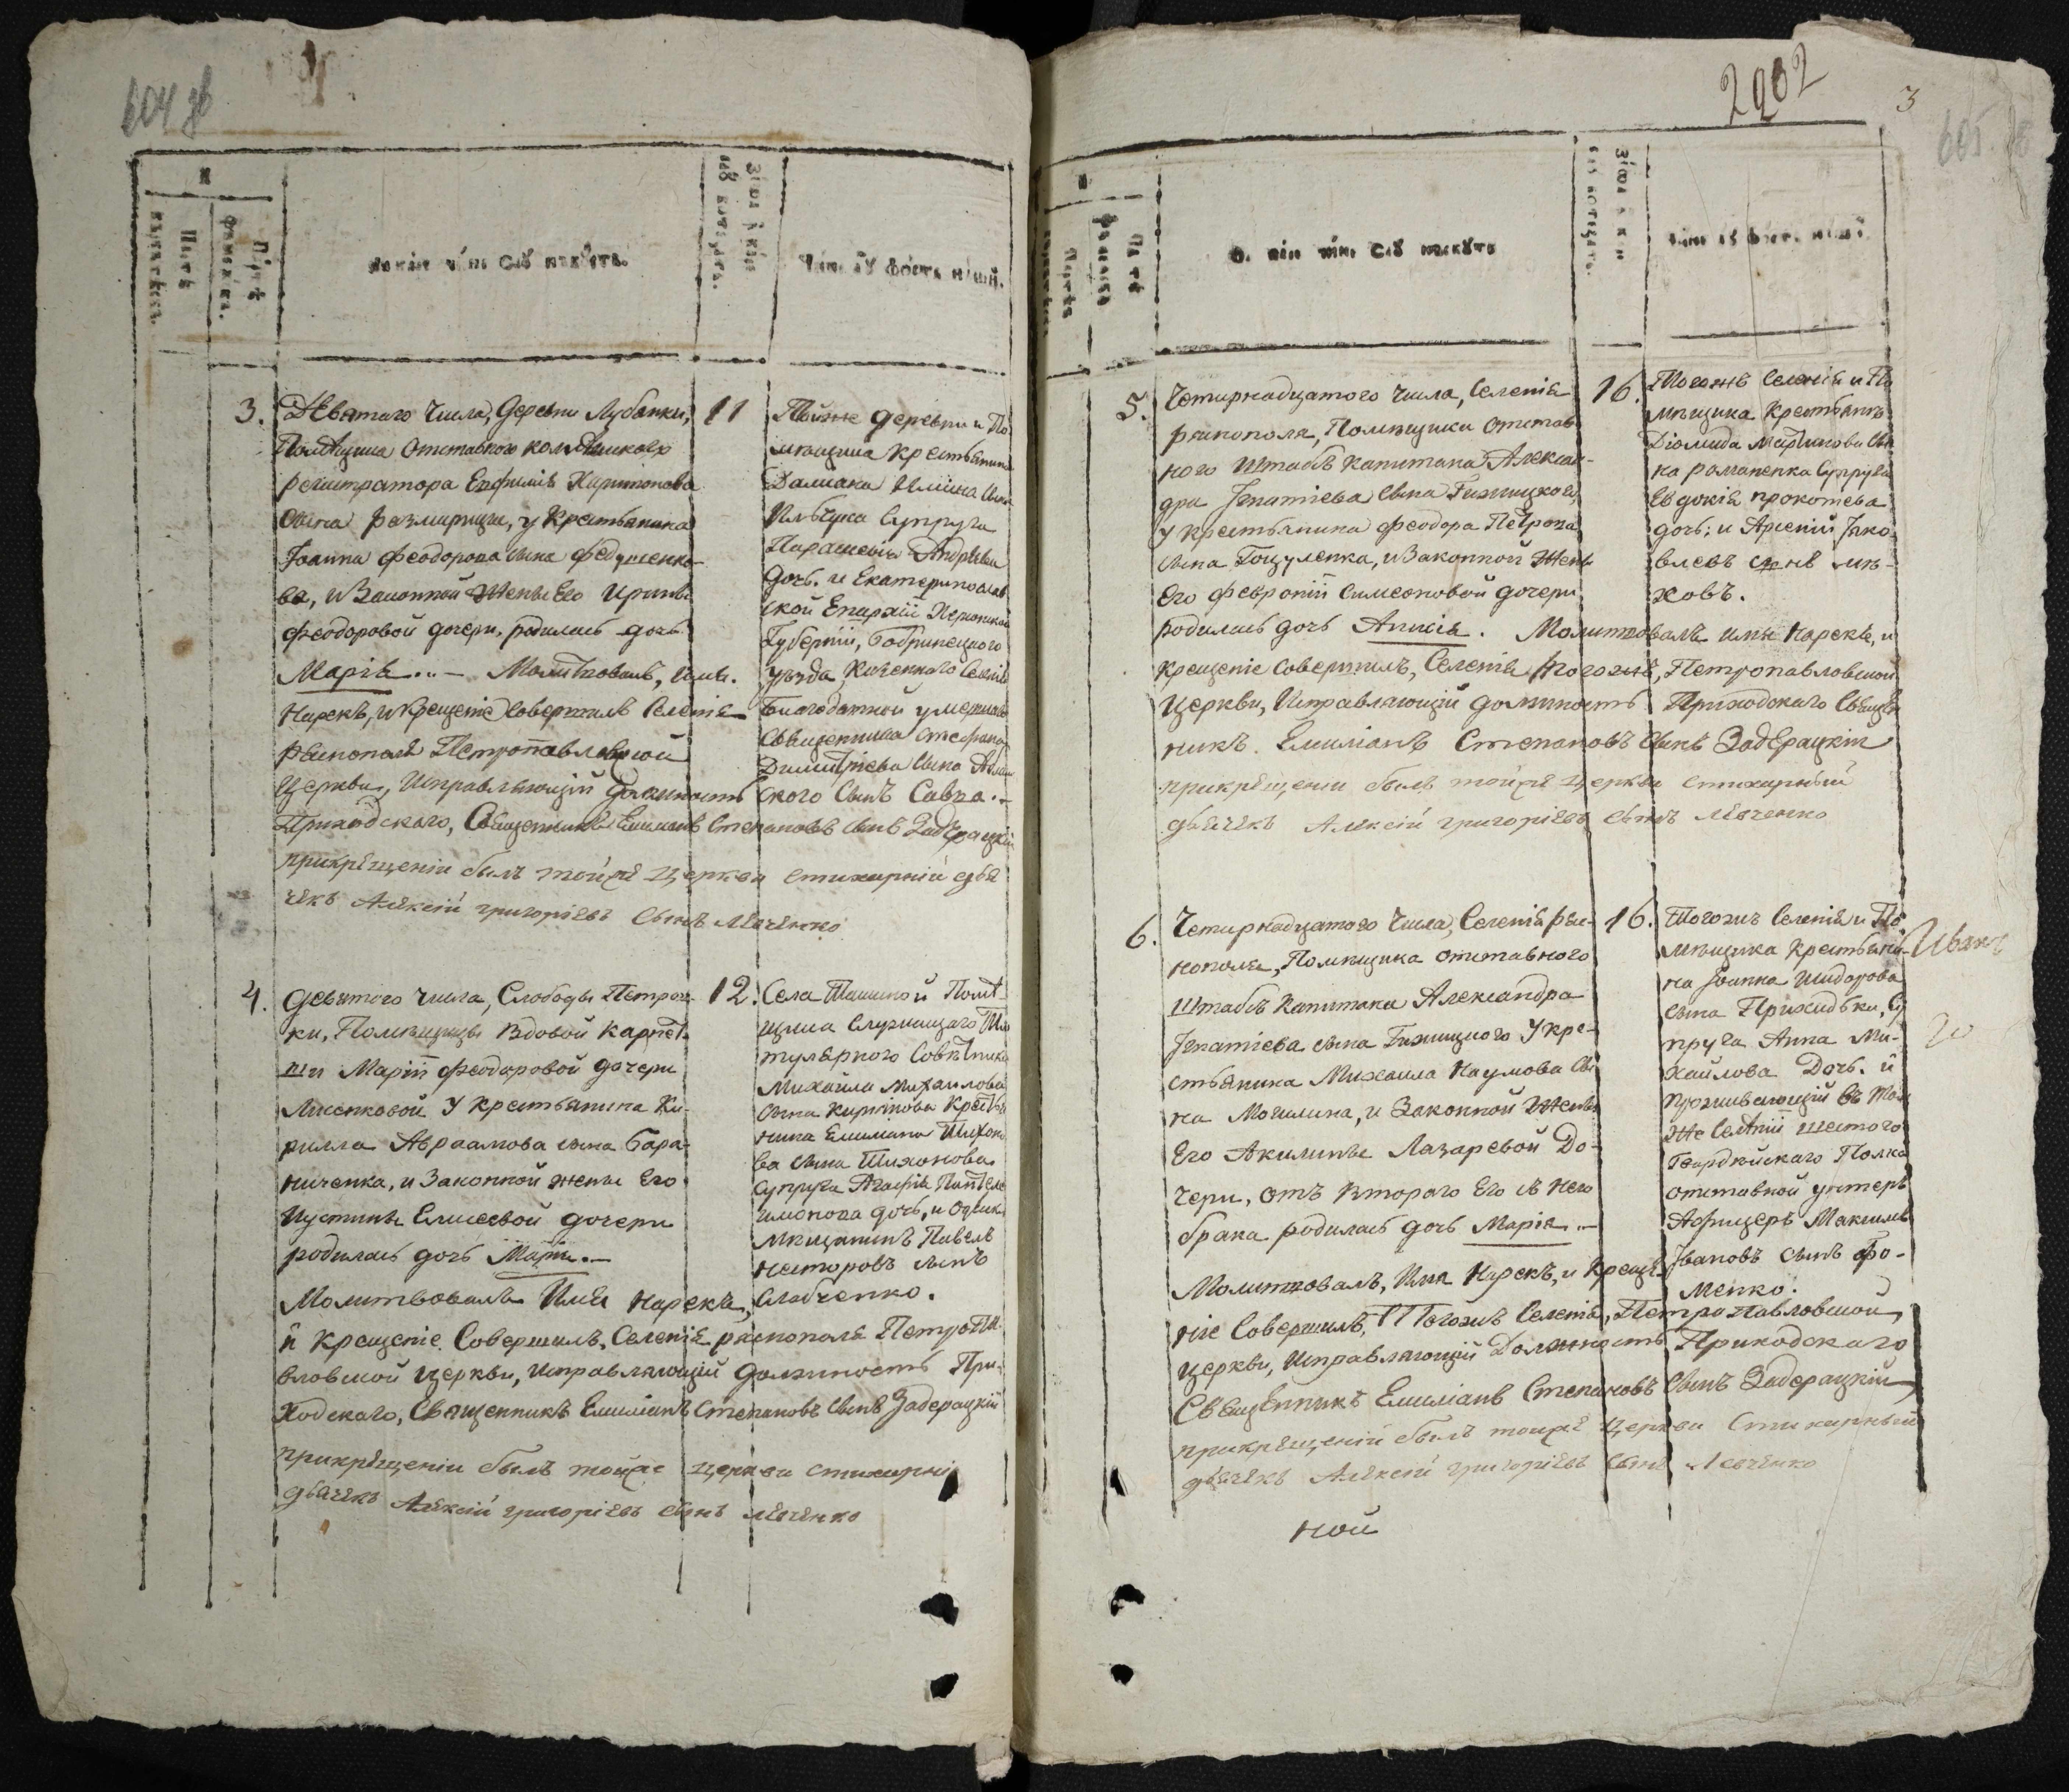 604 об
3.
Девятаго Числа, Деревни Лубянки,
Помѣщика Отставного коллѣжскаго
регистратора Евфимія Харитонова
Сына размирицы, у Крестьянина
Іоанна Феодорова сына Федуненко-
ва, и Законной Жены Его Ирины
Феодоровой дочери, родилась дочь
Марія. Молитвовалъ, имя.
Нарекъ, и Крещеніе Совершилъ Селенія
раснополя Петропавловской
Церкви, Исправляющій Должность
Приходскаго, Священникъ Емиліанъ Степановъ сынъ Задерацкій
прикрещеніи былъ тойже Церкви стихирній дья
чекъ Алексій григоріевъ сынъ лѣвченко
11
Тойже деревни и По
мѣщика Крестьянина
Даміана Иліина сына
Ильчука Супруга
Параскевія Андреева
Дочь. и Екатеринослав
ской Епархіи Херсонской
Губерніи, Бобринецкого
уѣзда Казеннаго Селенія
Благодатной умершаго
Священника Стефана
Димитріева сына
ского сынъ Савва.
4.
девятого числа, Слободы Петров-
ки, Помѣщицы Вдовой
Маріи Феодоровой дочери
Лисенковой У Крестьянина Ки-
рилла Авраамова сына Бара-
ниченка, и Законной жены Его
Иустины Елисеевой дочери
родилась дочь Марія.
Молитвовалъ Имя Нарекъ,
и Крещеніе Совершилъ, Селенія раснополя Петропа
вловской Церкви, Исправляющій должность При-
ходскаго, Священникъ Емиліанъ Степановъ Сынъ Задерацкій
прикрещеніи былъ тойже церкви стихирні
дьячекъ Алексій григоріевъ сынъ лѣвченко
12.
Села Ташиной Помѣ-
щика Служащаго Ти
тулярного Совѣтника
Михайла Михаилова
сына Кирьякова Крестья
нина Емиліана Тихоно
ва сына Тихонова
супруга Агафія Пантеле
имонова дочь, и
мѣщанинъ Павелъ
несторовъ сынъ
Слабченко.
2902
3
605
5.
Четырнадцатого Числа, Селенія
раснополя, Помѣщика Отстав-
ного Штабсъ Капитана Алексан-
дра Игнатіева сына Гижицкого,
у Крестьянина Феодора Петрова
сына Гоцуленка, и Законной Жены
Его Февроніи Симеоновой дочери
родилась дочь Анисія. Молитвовалъ имя Нарекъ, и
Крещеніе Совершилъ, Селенія тогожъ, Петропавловской
Церкви, Исправляющій должность Приходскаго Священ
никъ. Емиліанъ Степановъ сынъ Задерацкій
прикрещеніи былъ тойже церкви стихирный
дьячекъ Алексій григоріевъ сынъ лѣвченко
16.
Тогожъ Селенія и По
мѣщика Крестьянина
Діомида Мартинова сы
на романенка Супруга
Евдокія прокопіева
дочь; и Арсеній Яко-
влевъ сынъ мѣ-
ховъ.
6.
Четырнадцатого Числа, Селенія рас-
нополя, Помѣщика отставного
Штабсъ Капитана Александра
Игнатіева сына Гижицкого У Кре-
стьянина Михаила Наумова сы
на Могилина, и Законной Жены
Его Акилины Лазаревой До-
чери, отъ втораго Его съ нею
брака родилась дочь Марія
Молитвовалъ, Имя Нарекъ, и Креще-
ніе Совершилъ, Тогожъ Селенія, Петропавловской
Церкви, Исправляющій Должность Приходскаго
Священникъ Емиліанъ Степановъ Сынъ Задерацкій
прикрещеніи былъ тойже церкви Стихирный
дьячекъ Алексій григоріевъ сынъ лѣвченко
ной
16.
Тогожъ Селенія и По
мѣщика Крестьяни-
на Іоанна Исидорова
сына Приходьки, Су
пруга Анна Ми-
хайлова Дочь. и
проживающій въ той
же Селеніи шестого
Гвардейскаго Полка
отставной унтеръ
Афицеръ Максимъ
Івановъ сынъ Фо-
менко.
Иванъ